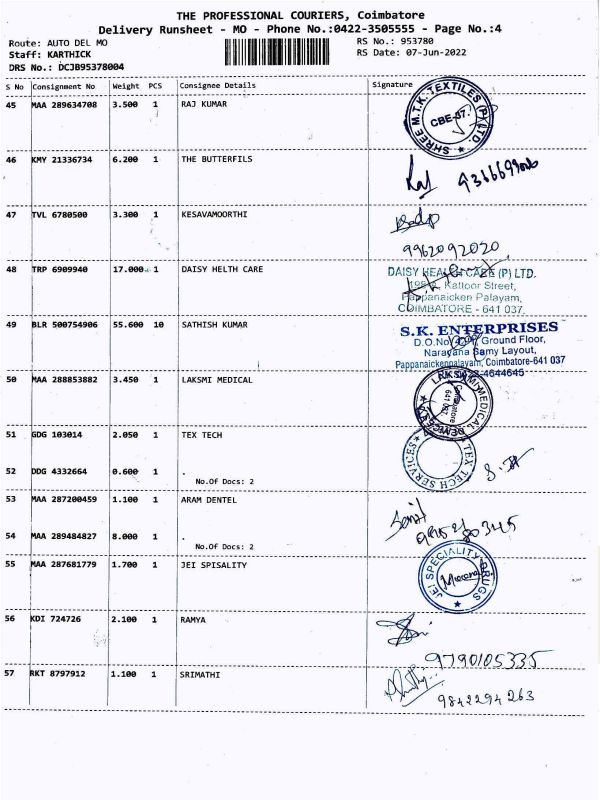 THE PROFESSIONAL COURIERS, Coimbatore
Delivery Runsheet - MO - Phone No.:0422-3505555 - Page No.:4
Route: AUTO DEL MO
RS No.: 953780
Staff: KARTHICK
RS Date: 07-Jun-2022
DRS No.: DCJB95378004
S No Consignment No Weight PCS Consignee Details Signature
45 MAA 289634708 3.500 1 RAJ KUMAR
SHREE M.T.K. TEXTILES (P) LTD.
CBE-37.
46 KMY 21336734 6.200 1 THE BUTTERFILS
47 TVL 6780500 3.300 1 KESAVAMOORTHI
9962092020
48 TRP 6909940 17.000 1 DAISY HELTH CARE
DAISY HEALTH CARE (P) LTD.
Kattoor Street,
Pappanaicken Palayam,
COIMBATORE - 641 037.
49 BLR 500754906 55.600 10 SATHISH KUMAR
S.K. ENTERPRISES
D.O.No. Ground Floor,
Narayana Samy Layout,
Pappanaickenpalayam, Coimbatore-641 037
4644645
50 MAA 288853882 3.450 1 LAKSMI MEDICAL
LAKSHMI MEDICAL DEVICES
Coimbatore
641 037.
51 GDG 103014 2.050 1 TEX TECH
TEX TECH SERVICES
52 DDG 4332664 0.600 1 .
No.Of Docs: 2
53 MAA 287200459 1.100 1 ARAM DENTEL
54 MAA 289484827 8.000 1 .
No.Of Docs: 2
55 MAA 287681779 1.700 1 JEI SPISALITY
JEI SPECIALITY DRUGS
56 KDI 724726 2.100 1 RAMYA
9790105335
57 RKT 8797912 1.100 1 SRIMATHI
9842294263